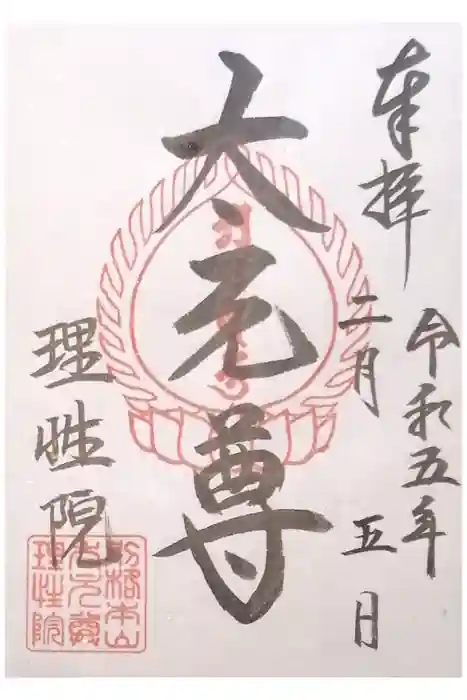 奉拝
令和五年
二月五日
大元尊
理性院
別格本山
大元尊
理性院